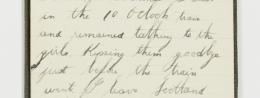 in the 10 O'Clock train
and remained talking to the
girls, Kissing them goodbye
just before the train
went. I leave Scotland